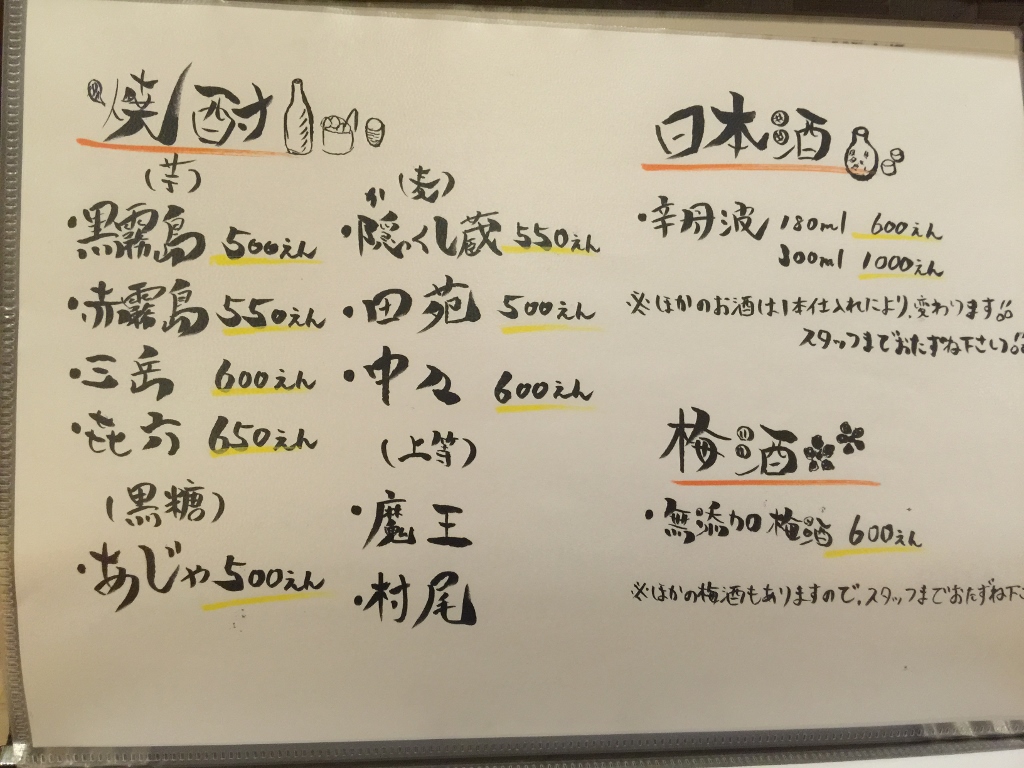 焼酎
(芋)
・黒霧島 500えん
・赤霧島 550えん
・三岳 600えん
・㐂六 650えん
(黒糖)
・あじゃ 500えん
(麦)
か
・隠し蔵 550えん
・田苑 500えん
・中々 600えん
(上等)
・魔王
・村尾
日本酒
・辛丹波 180ml 600えん
300ml 1000えん
※ほかのお酒は1本仕入れにより、変わります。
スタッフまでおたずね下さい。
梅酒
・無添加梅酒 600えん
※ほかの梅酒もありますので、スタッフまでおたずね下さ